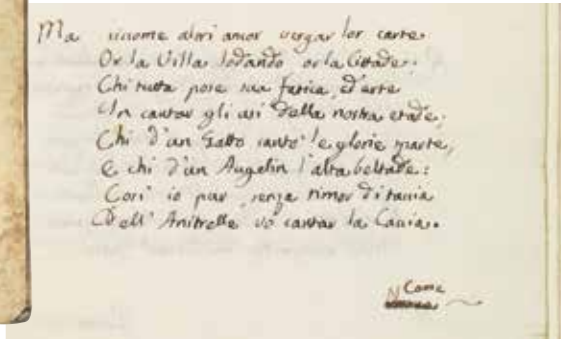 Ma sicome altri amor vergar lor carte
Or la Villa lodando or la Cittade;
Chi tutta pose sua fatica, ed arte
In cantar gli usi della nostra etade;
Chi d'un Gatto cantò le glorie sparte,
E chi d'un Augelin l'alta beltade:
Così io pur, senza timor di taccia
Dell'Anitrelle vò cantar la Caccia.
Come